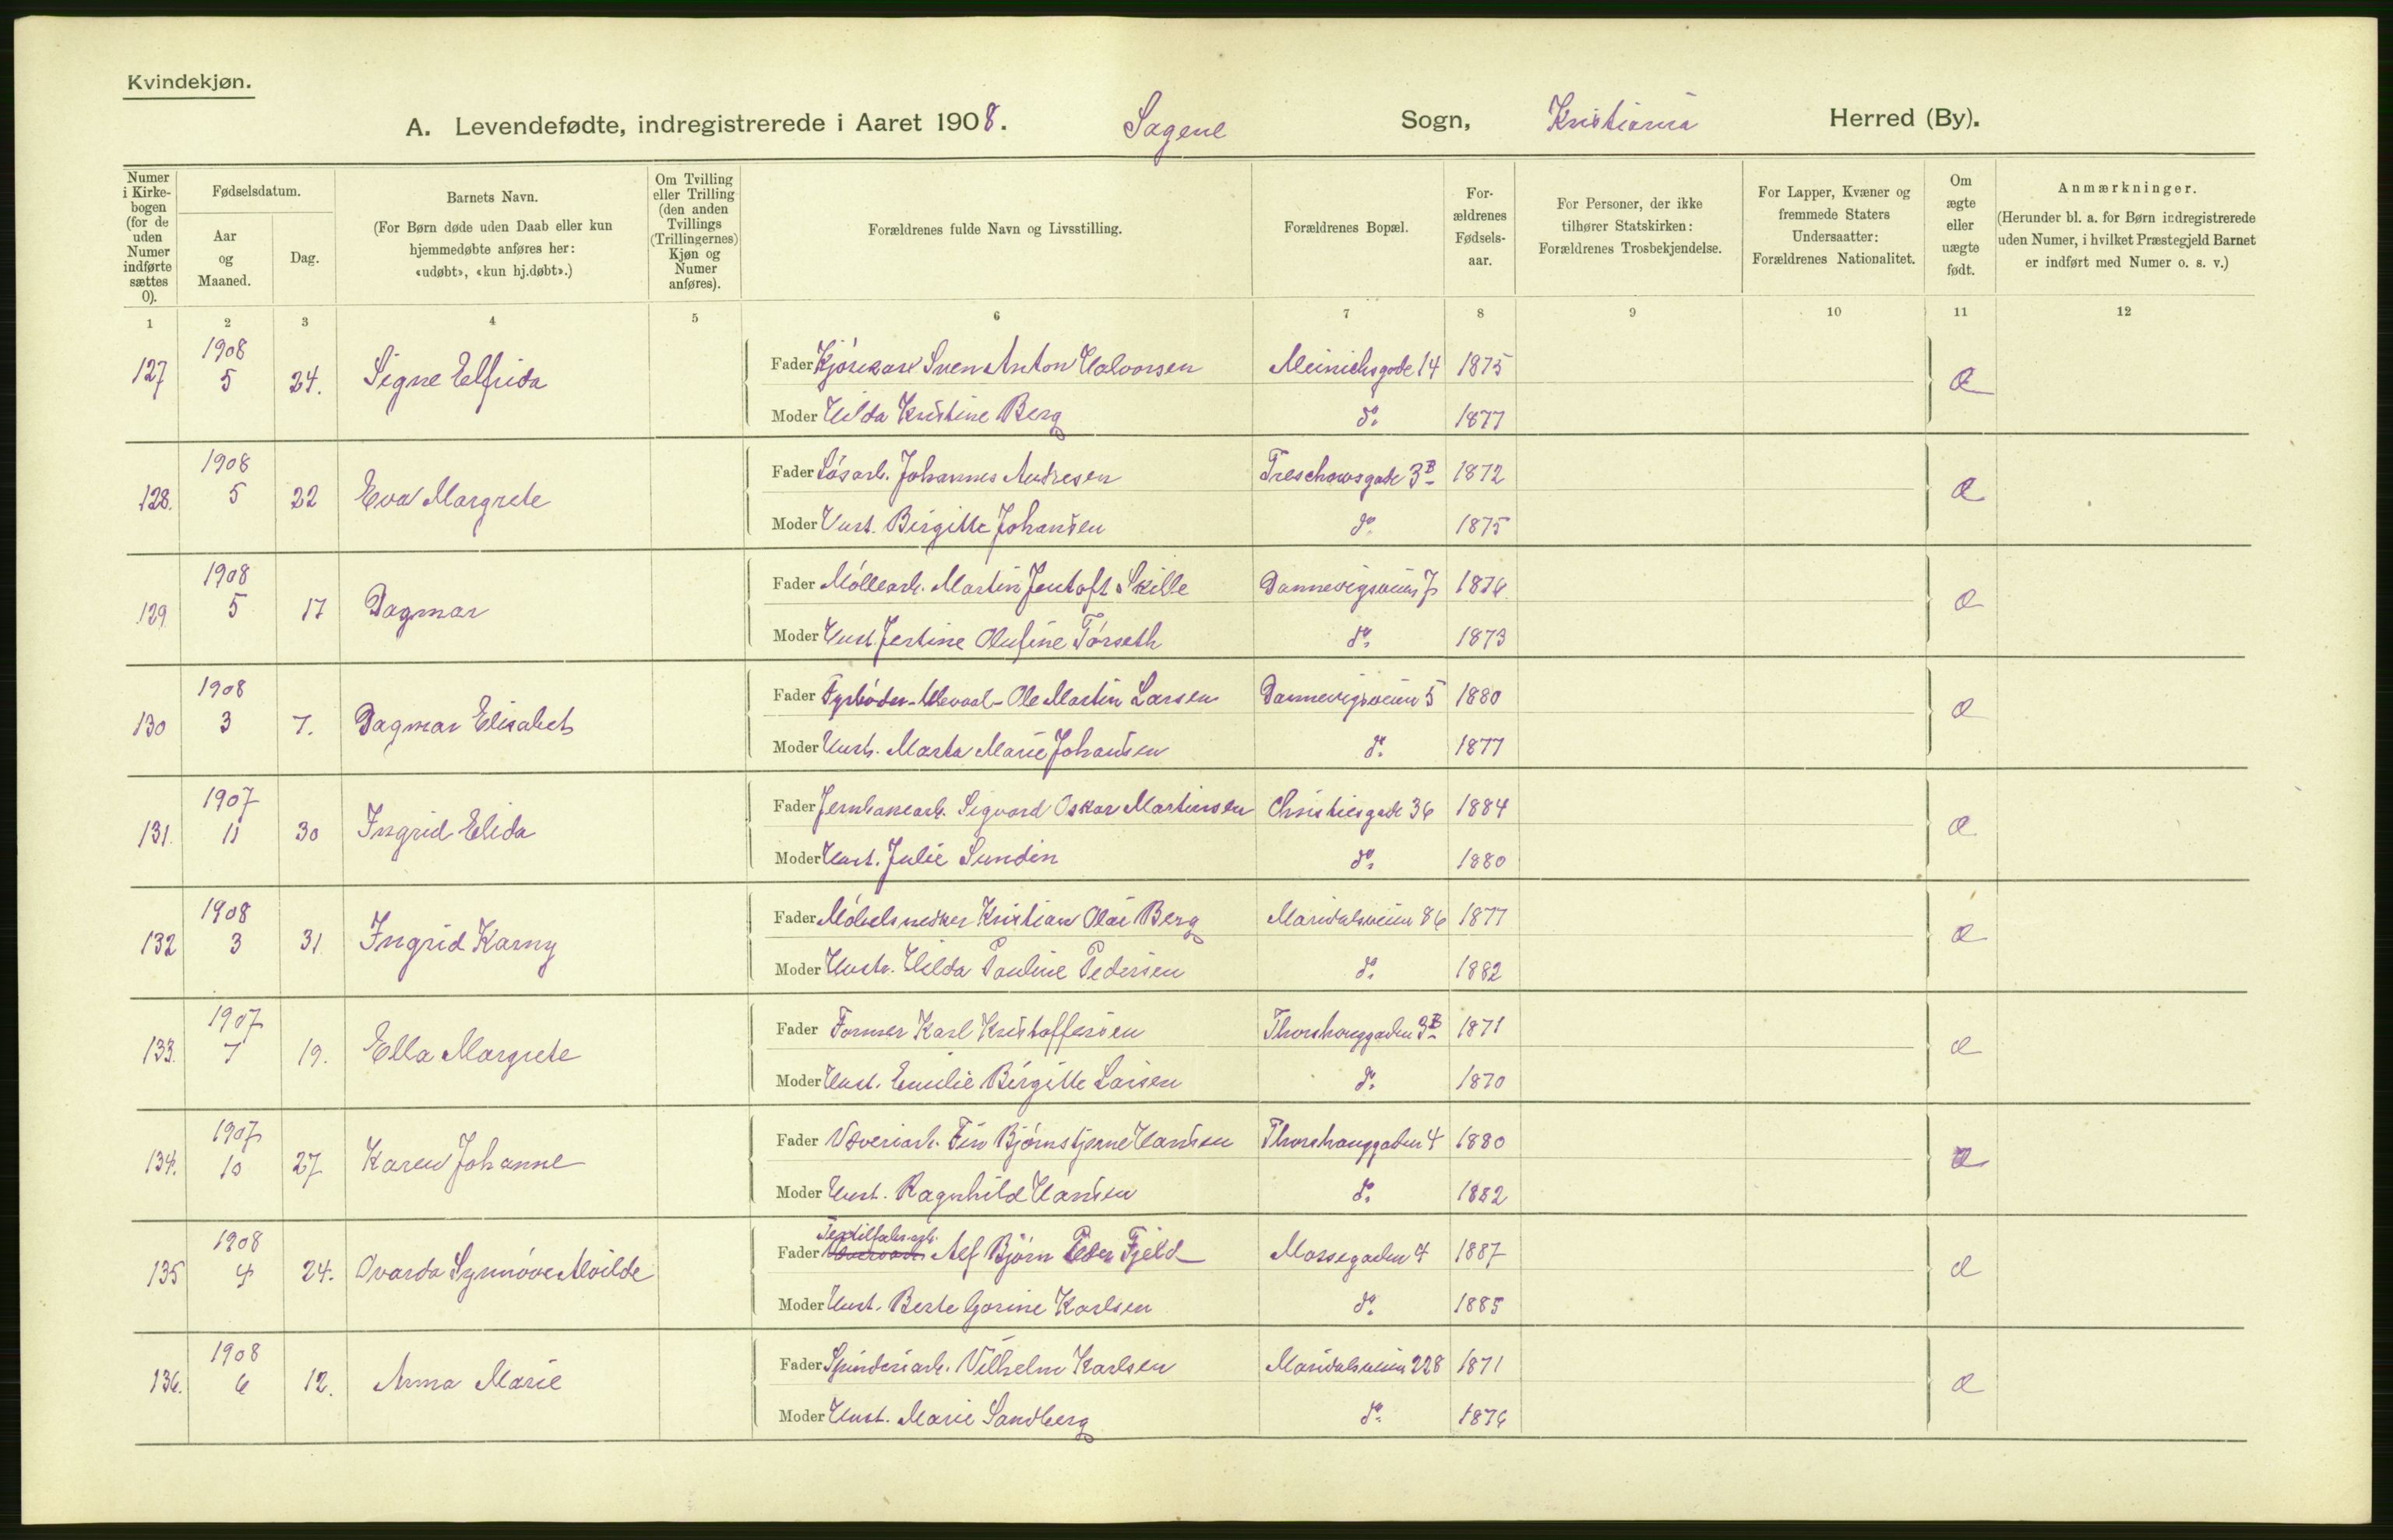 Kvindekjøn.
A. Levendefødte, indregistrerede i Aaret 1908. Sagene Sogn, Kristiania Herred (By).
Numer i Kirkebogen (for de uden Numer indførte sættes 0).
Fødselsdatum.
Aar og Maaned.
Dag.
Barnets Navn.
(For Børn døde uden Daab eller kun hjemmedøbte anføres her: «udøbt», «kun hj.døbt».)
Om Tvilling eller Trilling (den anden Tvillings (Trillingernes) Kjøn og Numer anføres).
Forældrenes fulde Navn og Livsstilling.
Forældrenes Bopæl.
Forældrenes Fødselsaar.
For Personer, der ikke tilhører Statskirken: Forældrenes Trosbekjendelse.
For Lapper, Kvæner og fremmede Staters Undersaatter: Forældrenes Nationalitet.
Om ægte eller uægte født.
Anmærkninger.
(Herunder bl. a. for Børn indregistrerede uden Numer, i hvilket Præstegjeld Barnet er indført med Numer o. s. v.)
1 2 3 4 5 6 7 8 9 10 11 12
127 1908 5 24. Signe Elfrida Fader Kjørekarl Sven Anton Halvorsen Meinichsgade 14 1875 Æ
Moder Hilda Kristine Berg do. 1877
128. 1908 5 22 Eva Margrete Fader Løsarb. Johannes Andresen Treschowsgade 3B 1872 Æ
Moder Hust. Birgitte Johansen do. 1875
129 1908 5 17 Dagmar Fader Møllearb. Martin Jentoft Skille Dannevigsveien 7 1876 Æ
Moder Hust. Jertine Olufine Førseth do. 1873
130 1908 3 7. Dagmar Elisabet Fader Fyrbøder - Ullevaal - Ole Martin Larsen Dannevigsveien 5 1880 Æ
Moder Hust. Marta Marie Johansen do. 1877
131. 1907 11 30 Ingrid Elida Fader Jernbanearb. Sigvard Oskar Martinsen Christiesgade 36 1884 Æ
Moder Hust. Julie Sundin do. 1880
132 1908 3 31. Ingrid Karny Fader Møbelsnedker Kristian Olai Berg Maridalsveien 86 1877 Æ
Moder Hustr. Hilda Pauline Pedersen do. 1882
133. 1907 7 19. Ella Margrete Fader Former Karl Kristoffersen Thorshauggaden 3B 1871 Æ
Moder Hust. Emilie Birgitte Larsen do. 1870
134. 1907 10 27 Karen Johanne Fader Væveriarb. Fin Bjørnstjerne Hansen Thorshauggaden 4 1880 Æ
Moder Hust. Ragnhild Hansen do. 1882
135 1908 4 24. Ovarda Synnøve Alvilde Fader Textilfabr.arb. Alf Bjørn Peder Fjeld Mossegaden 4 1887 Æ
Moder Hust. Berte Gorine Karlsen do. 1885
136. 1908 6 12. Anna Marie Fader Spinderiarb. Vilhelm Karlsen Maridalsveien 228 1871 Æ
Moder Hust. Marie Sandberg do. 1876